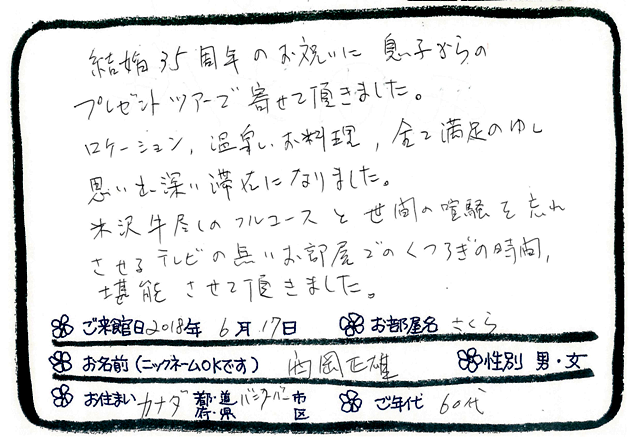 結婚35周年のお祝いに息子からの
プレゼントツアーで寄せて頂きました。
ロケーション,温泉,お料理,全て満足のゆく
思い出深い滞在になりました。
米沢牛尽しのフルコースと世間の喧騒を忘れ
させるテレビの無いお部屋でのくつろぎの時間,
堪能させて頂きました。
ご来館日2018年 6月17日 お部屋名 さくら
お名前(ニックネームOKです) 内岡正雄 性別 男・女
お住まい カナダ 都・道・府・県 バンクーバー 市 区 ご年代 60代